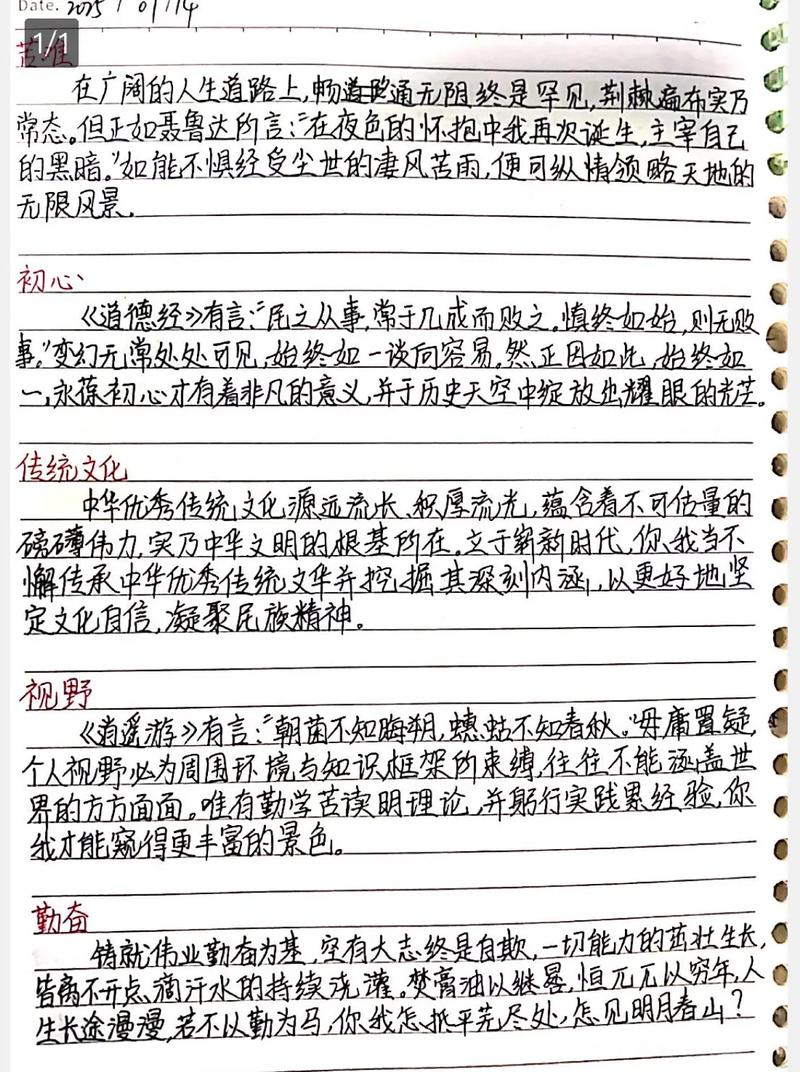 Date. 2025 / 01 / 14
1/1
苦难
在广阔的人生道路上,畅道路通无阻终是罕见,荆棘遍布实乃
常态。但正如聂鲁达所言:“在夜色的怀抱中我再次诞生,主宰自己
的黑暗。”如能不惧经受尘世的凄风苦雨,便可纵情领略天地的
无限风景。
初心
《道德经》有言:“民之从事,常于几成而败之。慎终如始,则无败
事。”变幻无常处处可见,始终如一谈何容易。然,正因如此,始终如
一,永葆初心才有着非凡的意义,并于历史天空中绽放出耀眼的光芒。
传统文化
中华优秀传统文化源远流长、积厚流光,蕴含着不可估量的
磅礴伟力,实乃中华文明的根基所在。立于崭新时代,你我当不
懈传承中华优秀传统文华并挖掘其深刻内涵,以更好地坚
定文化自信,凝聚民族精神。
视野
《逍遥游》有言:“朝菌不知晦朔,蟪蛄不知春秋。”毋庸置疑,
个人视野必为周围环境与知识框架所束缚,往往不能涵盖世
界的方方面面。唯有勤学苦读明理论,并躬行实践累经验,你
我才能窥得更丰富的景色。
勤奋
铸就伟业勤奋为基,空有大志终是自欺,一切能力的茁壮生长,
皆离不开点滴汗水的持续浇灌。焚膏油以继晷,恒兀兀以穷年,人
生长途漫漫,若不以勤为马,你我怎抵平芜尽处,怎见明月春山?